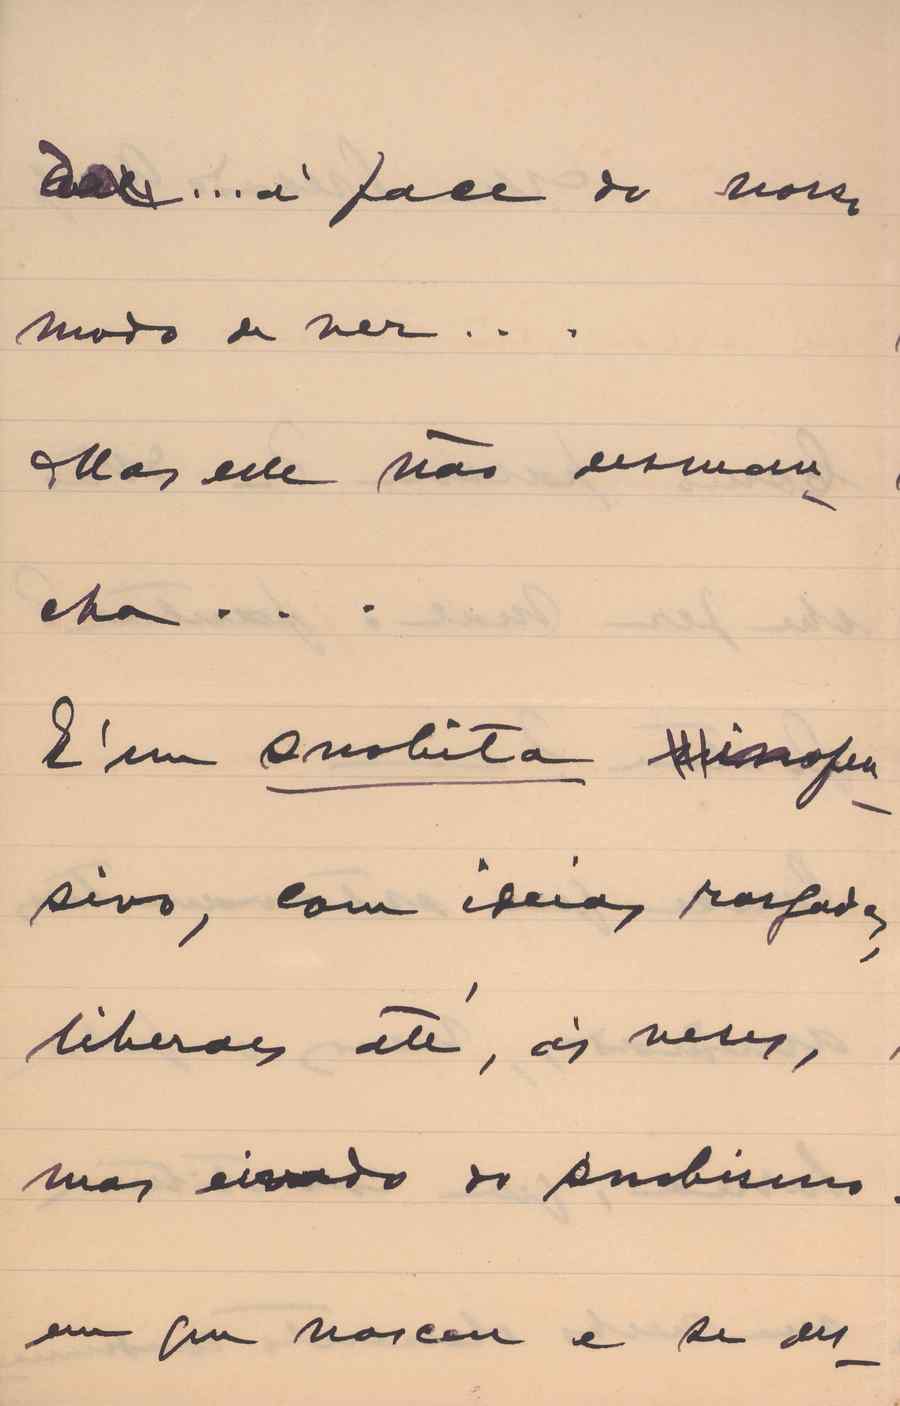 ... á face do nosso
modo de ver...
Mas elle não desman-
cha...
E' um snobita inofen-
sivo, com ideias rasgadas,
liberaes até, ás veses,
mas eivado do snobismo
em que nasceu e se des-